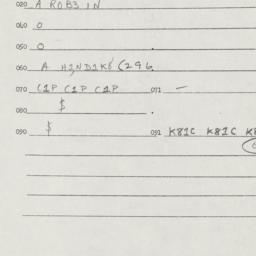 020 A ROB3 IN
060 0
050 0
060 A H2ND1K6 (296
070 C1P C1P C1P 071 —
080 $
090 $ 091 K81C K81C K8